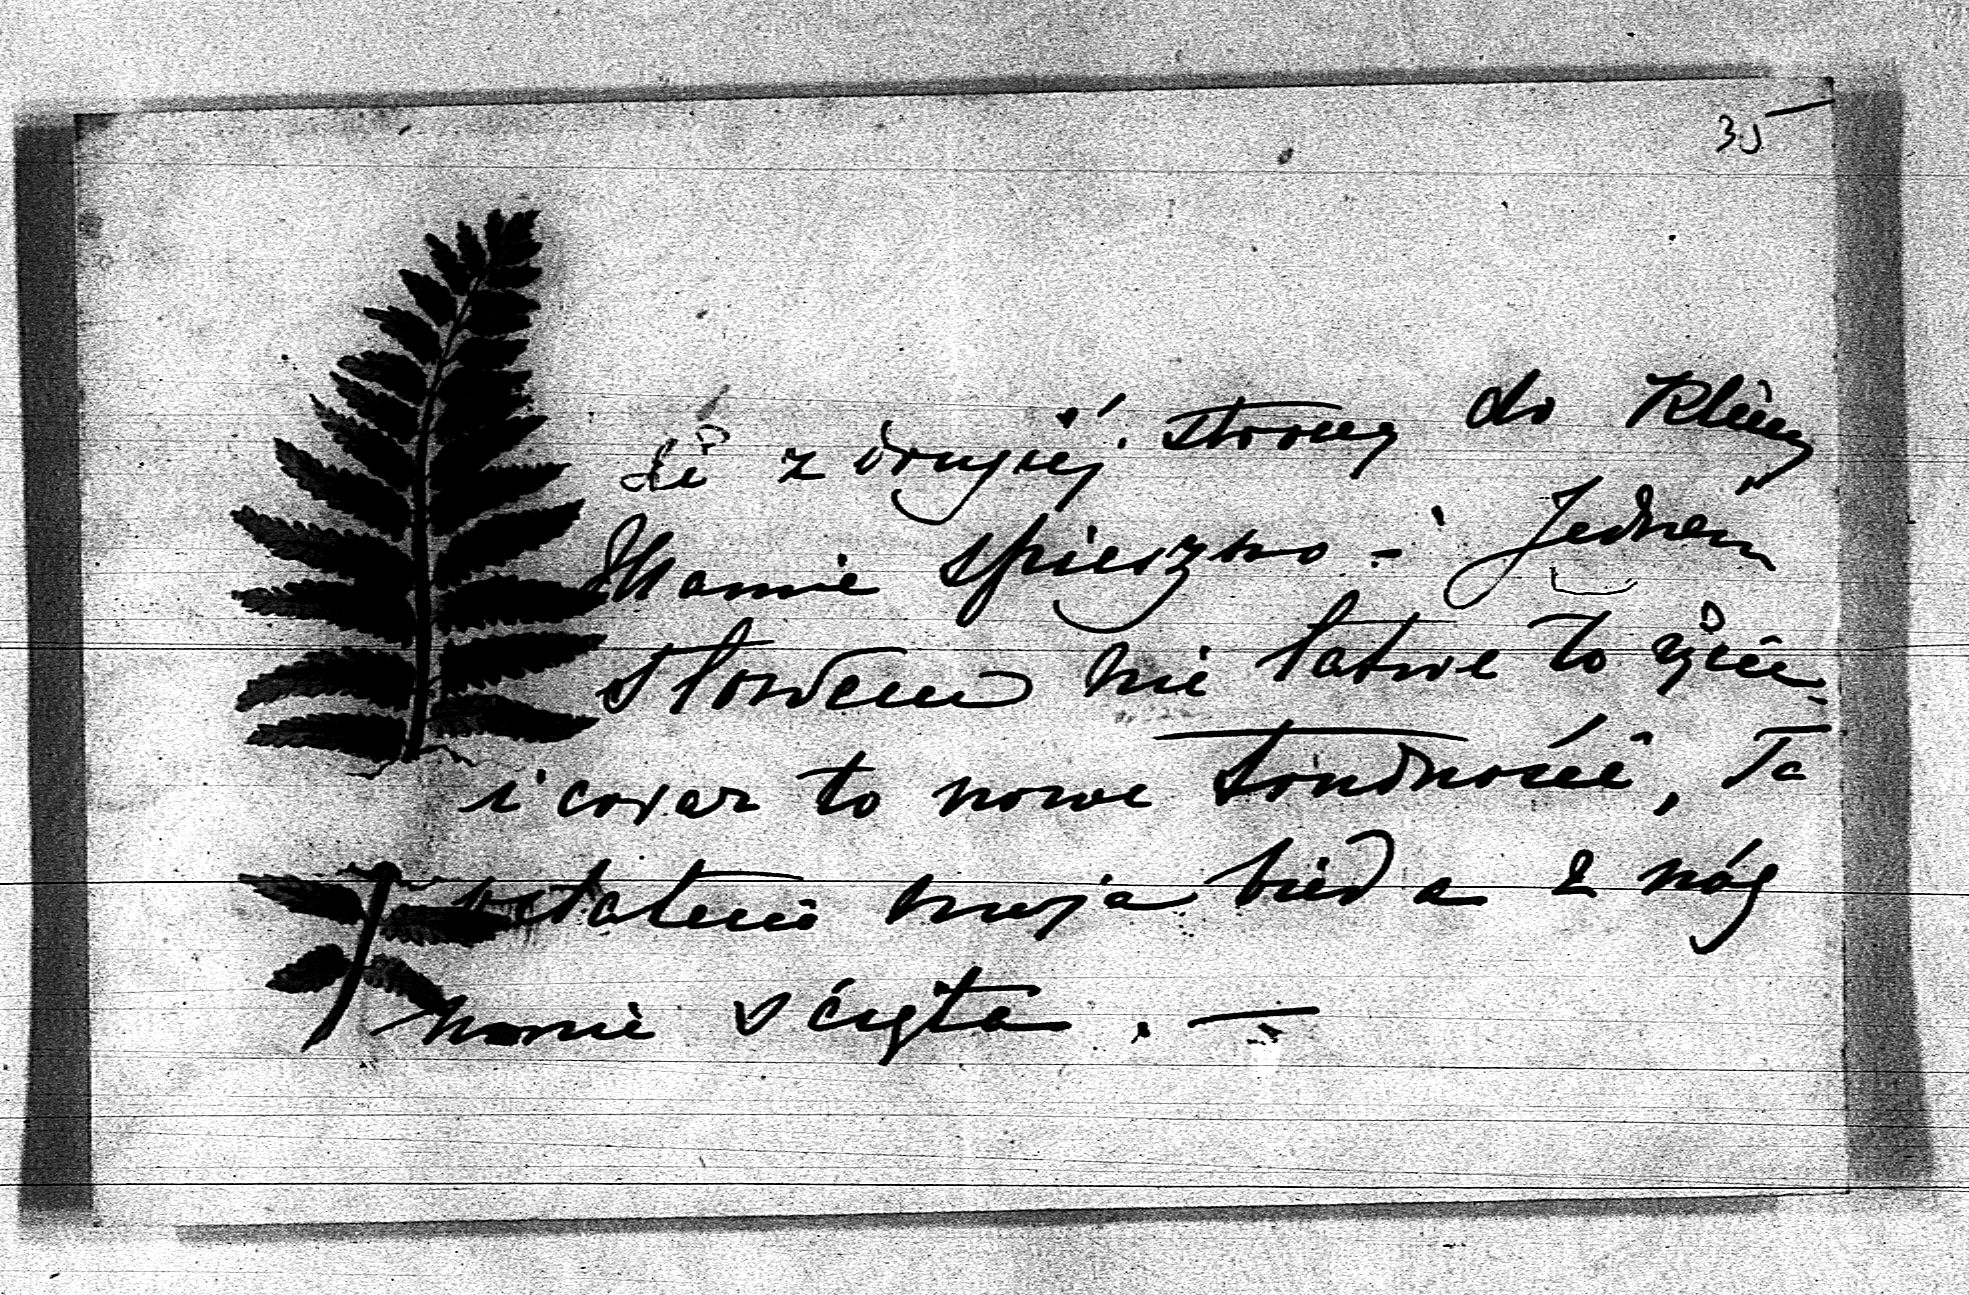 35
z drugiéj strony do Kliny
Mamie spieszno – Jedném
słowem nie łatwe to życie
i coraz to nowe trudności, Ta
ostatnia moja bieda z nóg
mnie ścięta. —